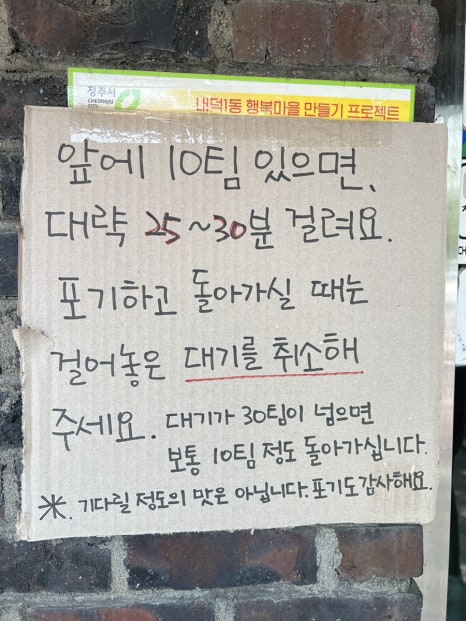 청주시
내덕1동 행복마을 만들기 프로젝트
앞에 10팀 있으면,
대략 25~30분 걸려요.
포기하고 돌아가실 때는
걸어놓은 대기를 취소해
주세요. 대기가 30팀이 넘으면
보통 10팀 정도 돌아가십니다.
※. 기다릴 정도의 맛은 아닙니다. 포기도 감사해요.